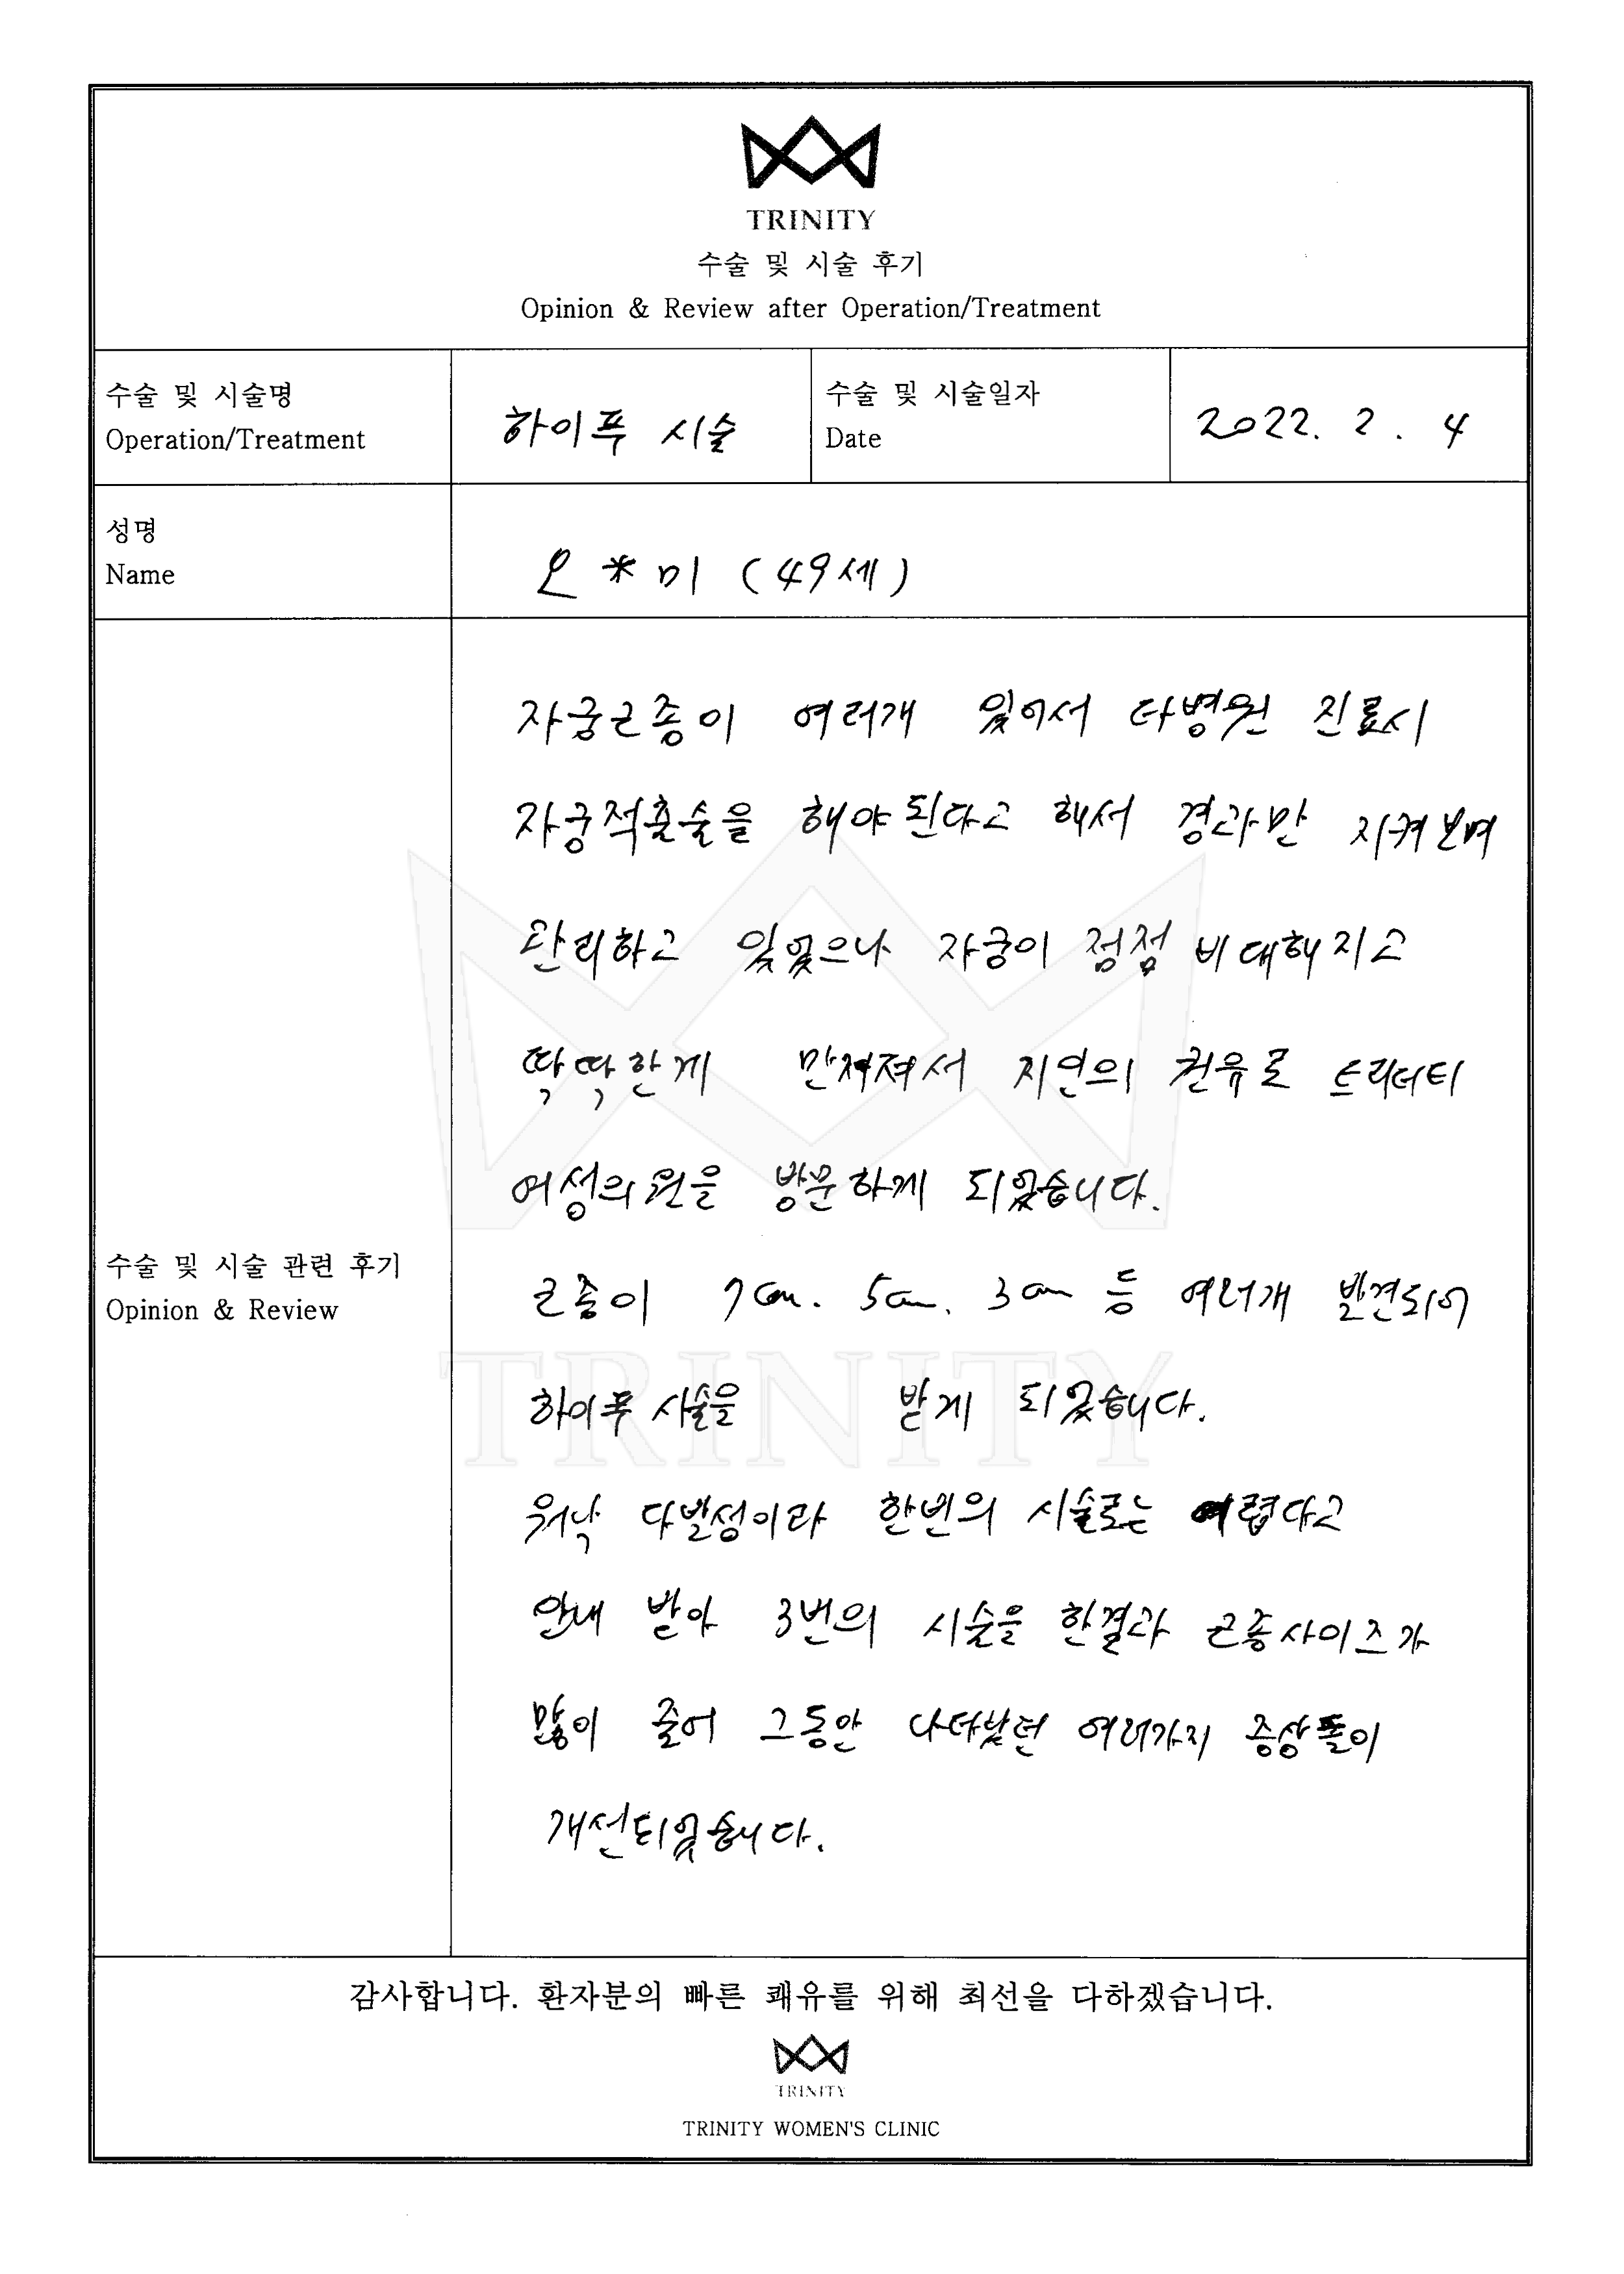 TRINITY
수술 및 시술 후기
Opinion & Review after Operation/Treatment
수술 및 시술명
Operation/Treatment
하이푸 시술
수술 및 시술일자
Date
2022. 2. 4
성명
Name
오*미 (49세)
수술 및 시술 관련 후기
Opinion & Review
자궁근종이 여러개 있어서 타병원 진료시
자궁적출술을 해야된다고 해서 경과만 지켜보며
관리하고 있었으나 자궁이 점점 비대해지고
딱딱한게 만져져서 지인의 권유로 트리니티
여성의원을 방문하게 되었습니다.
근종이 7cm. 5cm. 3cm 등 여러개 발견되어
하이푸 시술을 받게 되었습니다.
워낙 다발성이라 한번의 시술로는 어렵다고
안내 받아 3번의 시술을 한결과 근종사이즈가
많이 줄어 그동안 나타났던 여러가지 증상들이
개선되었습니다.
TRINITY
감사합니다. 환자분의 빠른 쾌유를 위해 최선을 다하겠습니다.
TRINITY
TRINITY WOMEN'S CLINIC